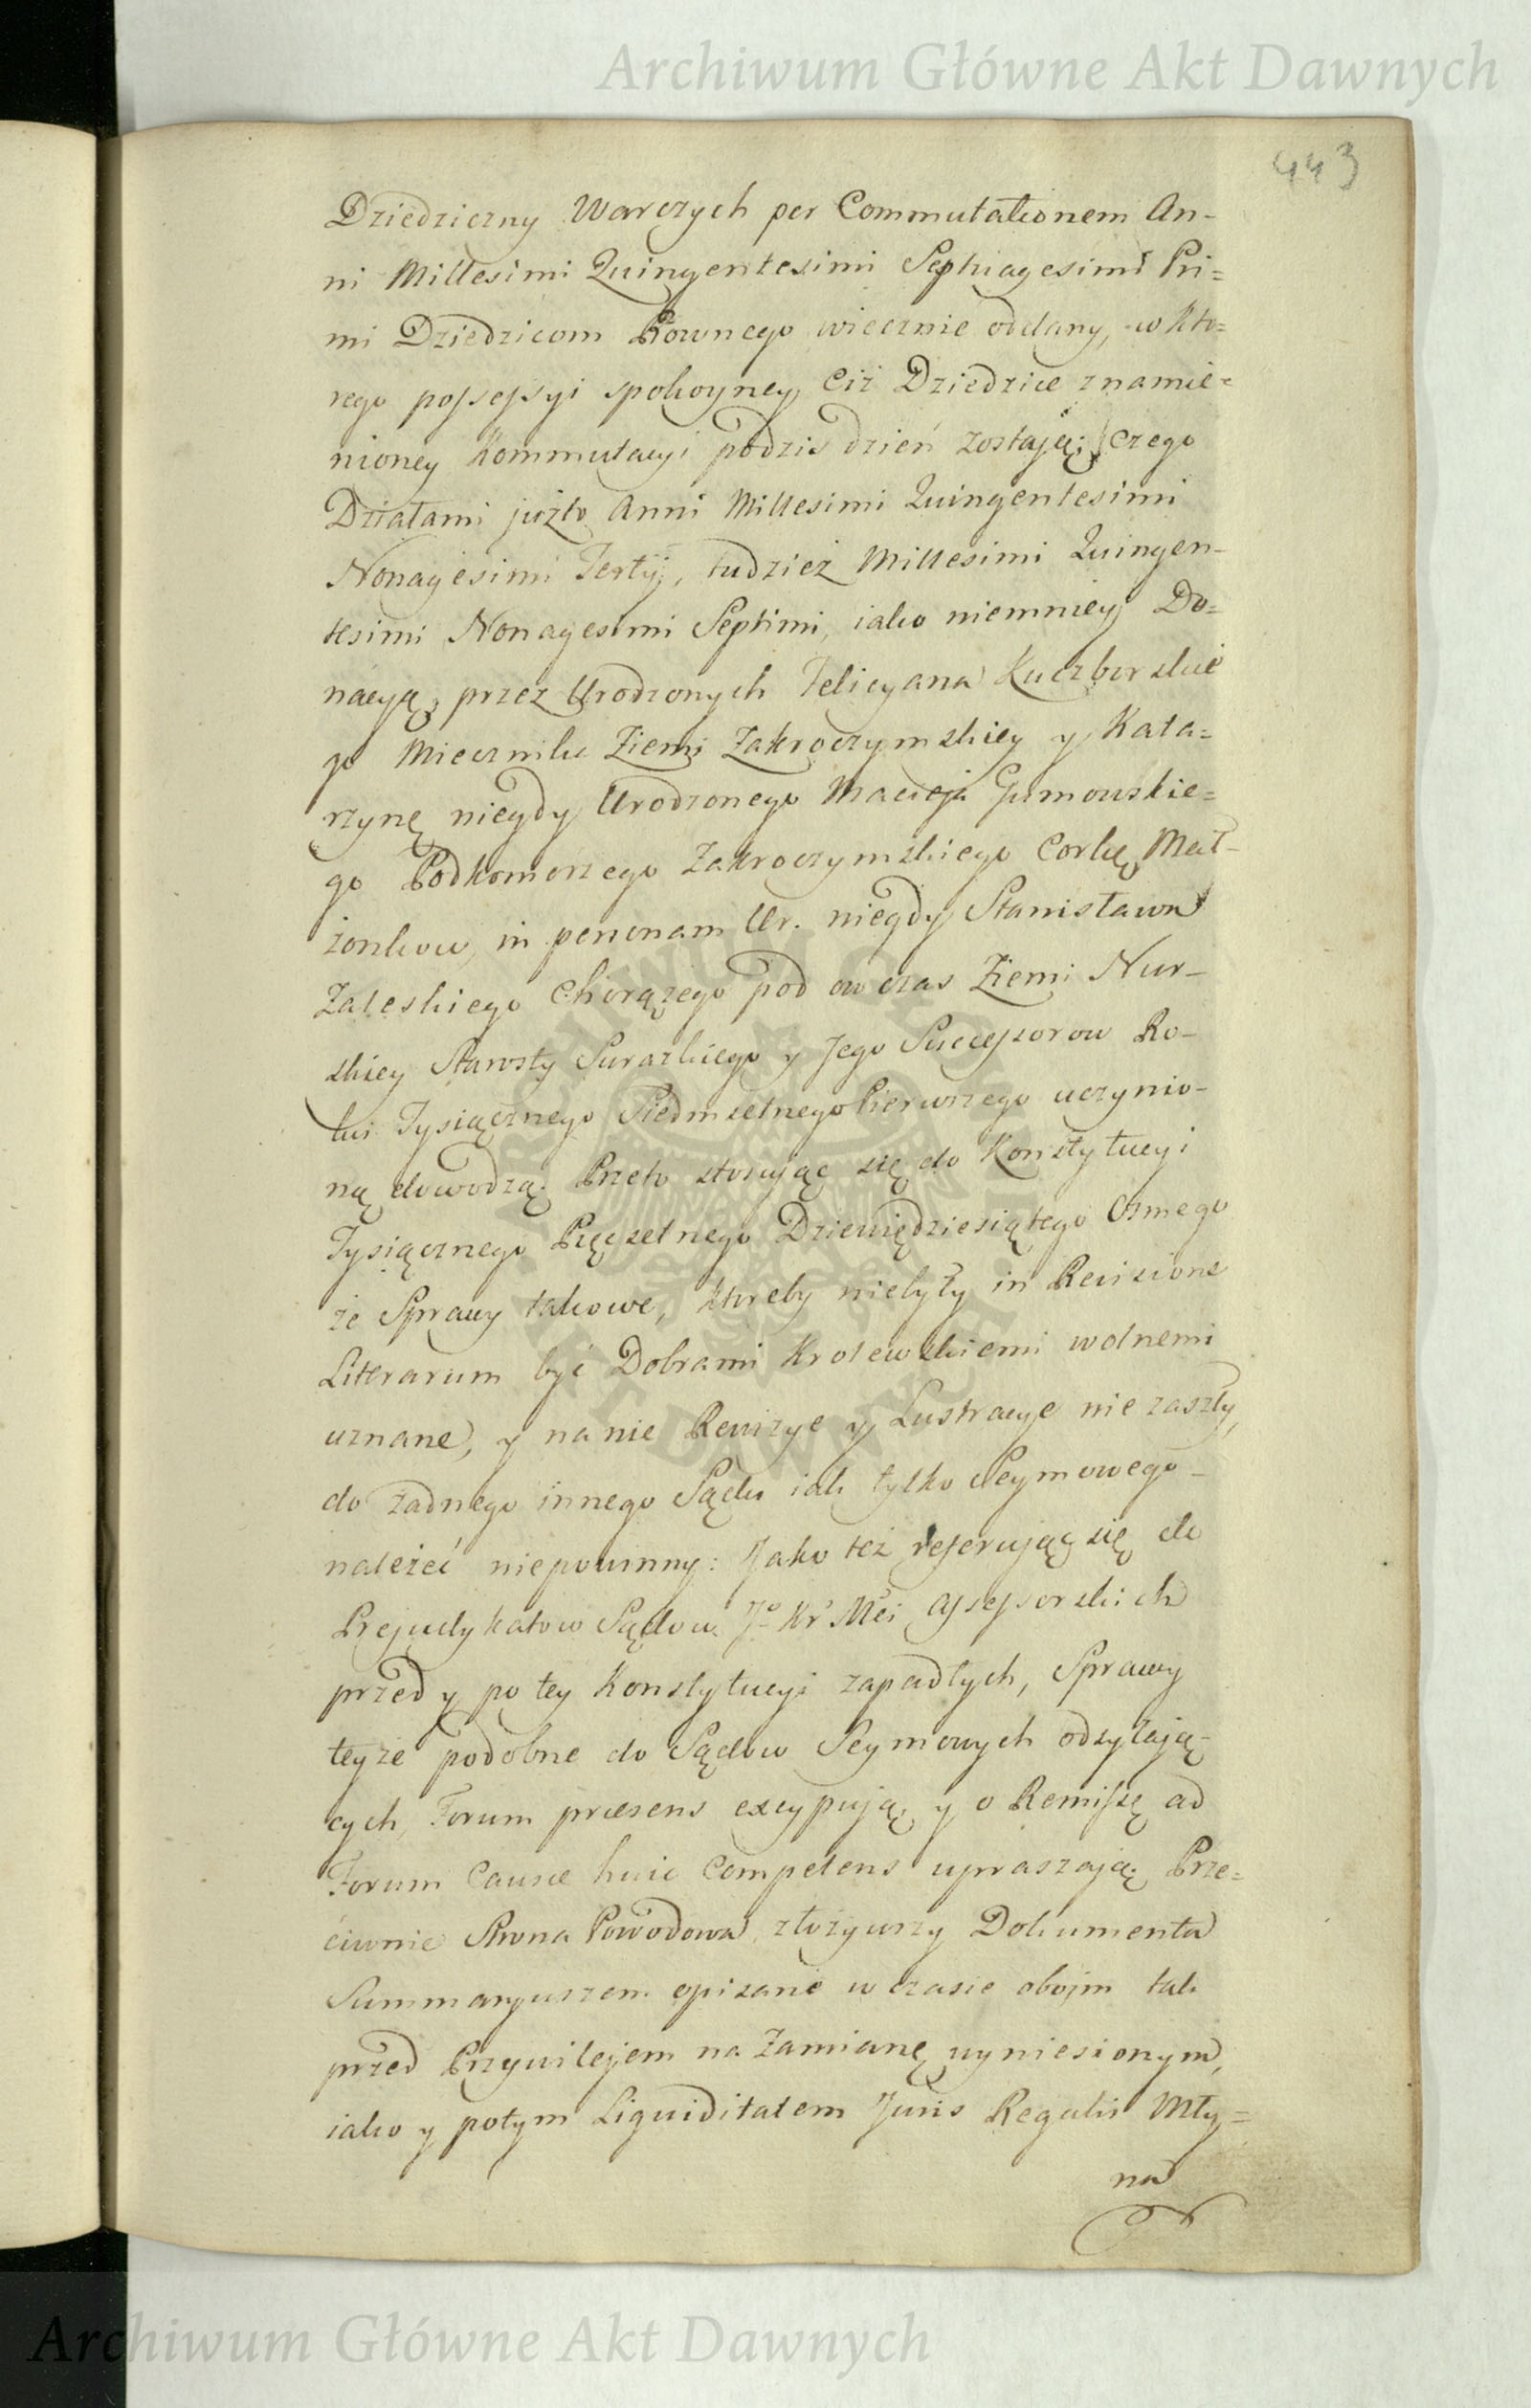 Archiwum Główne Akt Dawnych
443
Dziedziczny Warczych per Commutationem An-
ni Millesimi Quingentesimi Septuagesimi Pri=
mi Dziedzicom Rownego wiecznie oddany, w kto=
rego possessyi spokoyney Ciż Dziedzice znamie=
nioney Kommutacyi podziś dzień zostają; czego
Działami jużto Anni Millesimi Quingentesimi
Nonagesimi Tertij, tudzież Millesimi Quingen-
tesimi Nonagesimi Septimi, iako niemniey Do=
nacyą, przez Urodzonych Felicyana Kuczborskie
go Miecznika Ziemi Zakroczymskiey y Kata=
rzynę niegdy Urodzonego Macieja Gumowskie=
go Podkomorzego Zakroczymskiego Corkę Mał-
żonkow, in personam Ur. niegdy Stanisława
Zaleskiego Chorążego pod owczas Ziemi Nur-
skiey Starosty Surazkiego y Jego Successorow Ro-
ku Tysiącznego Siedmsetnego Pierwszego uczynio-
ną dowodzą. Przeto stosując się do Konstytucyi
Tysiącznego Pięćsetnego Dziewiędziesiątego Osmego
że Sprawy takowe, ktoreby niebyły in Revisione
Literarum być Dobrami Krolewskiemi wolnemi
uznane, y na nie Rewizye y Lustracye nie zaszły,
do żadnego innego Sądu iak tylko Seymowego-
należeć niepowinny: Jako też referując się do
Prejudykatow Sądow Jo Kr Mci Assessorskich
przed y po tey Konstytucyi zapadłych, Sprawy
teyże podobne do Sądow Seymowych odsyłają-
cych, Forum præsens excypują, y o Remissę ad
Forum Causæ huic Competens upraszają. Prze=
ciwnie Strona Powodowa, złożywszy Dokumenta
Summaryuszem opisane w czasie oboim tak
przed Przywilejem na Zamianę wyniesionym,
iako y potym Liquiditatem Juris Regalis Mły=
na
Archiwum Główne Akt Dawnych